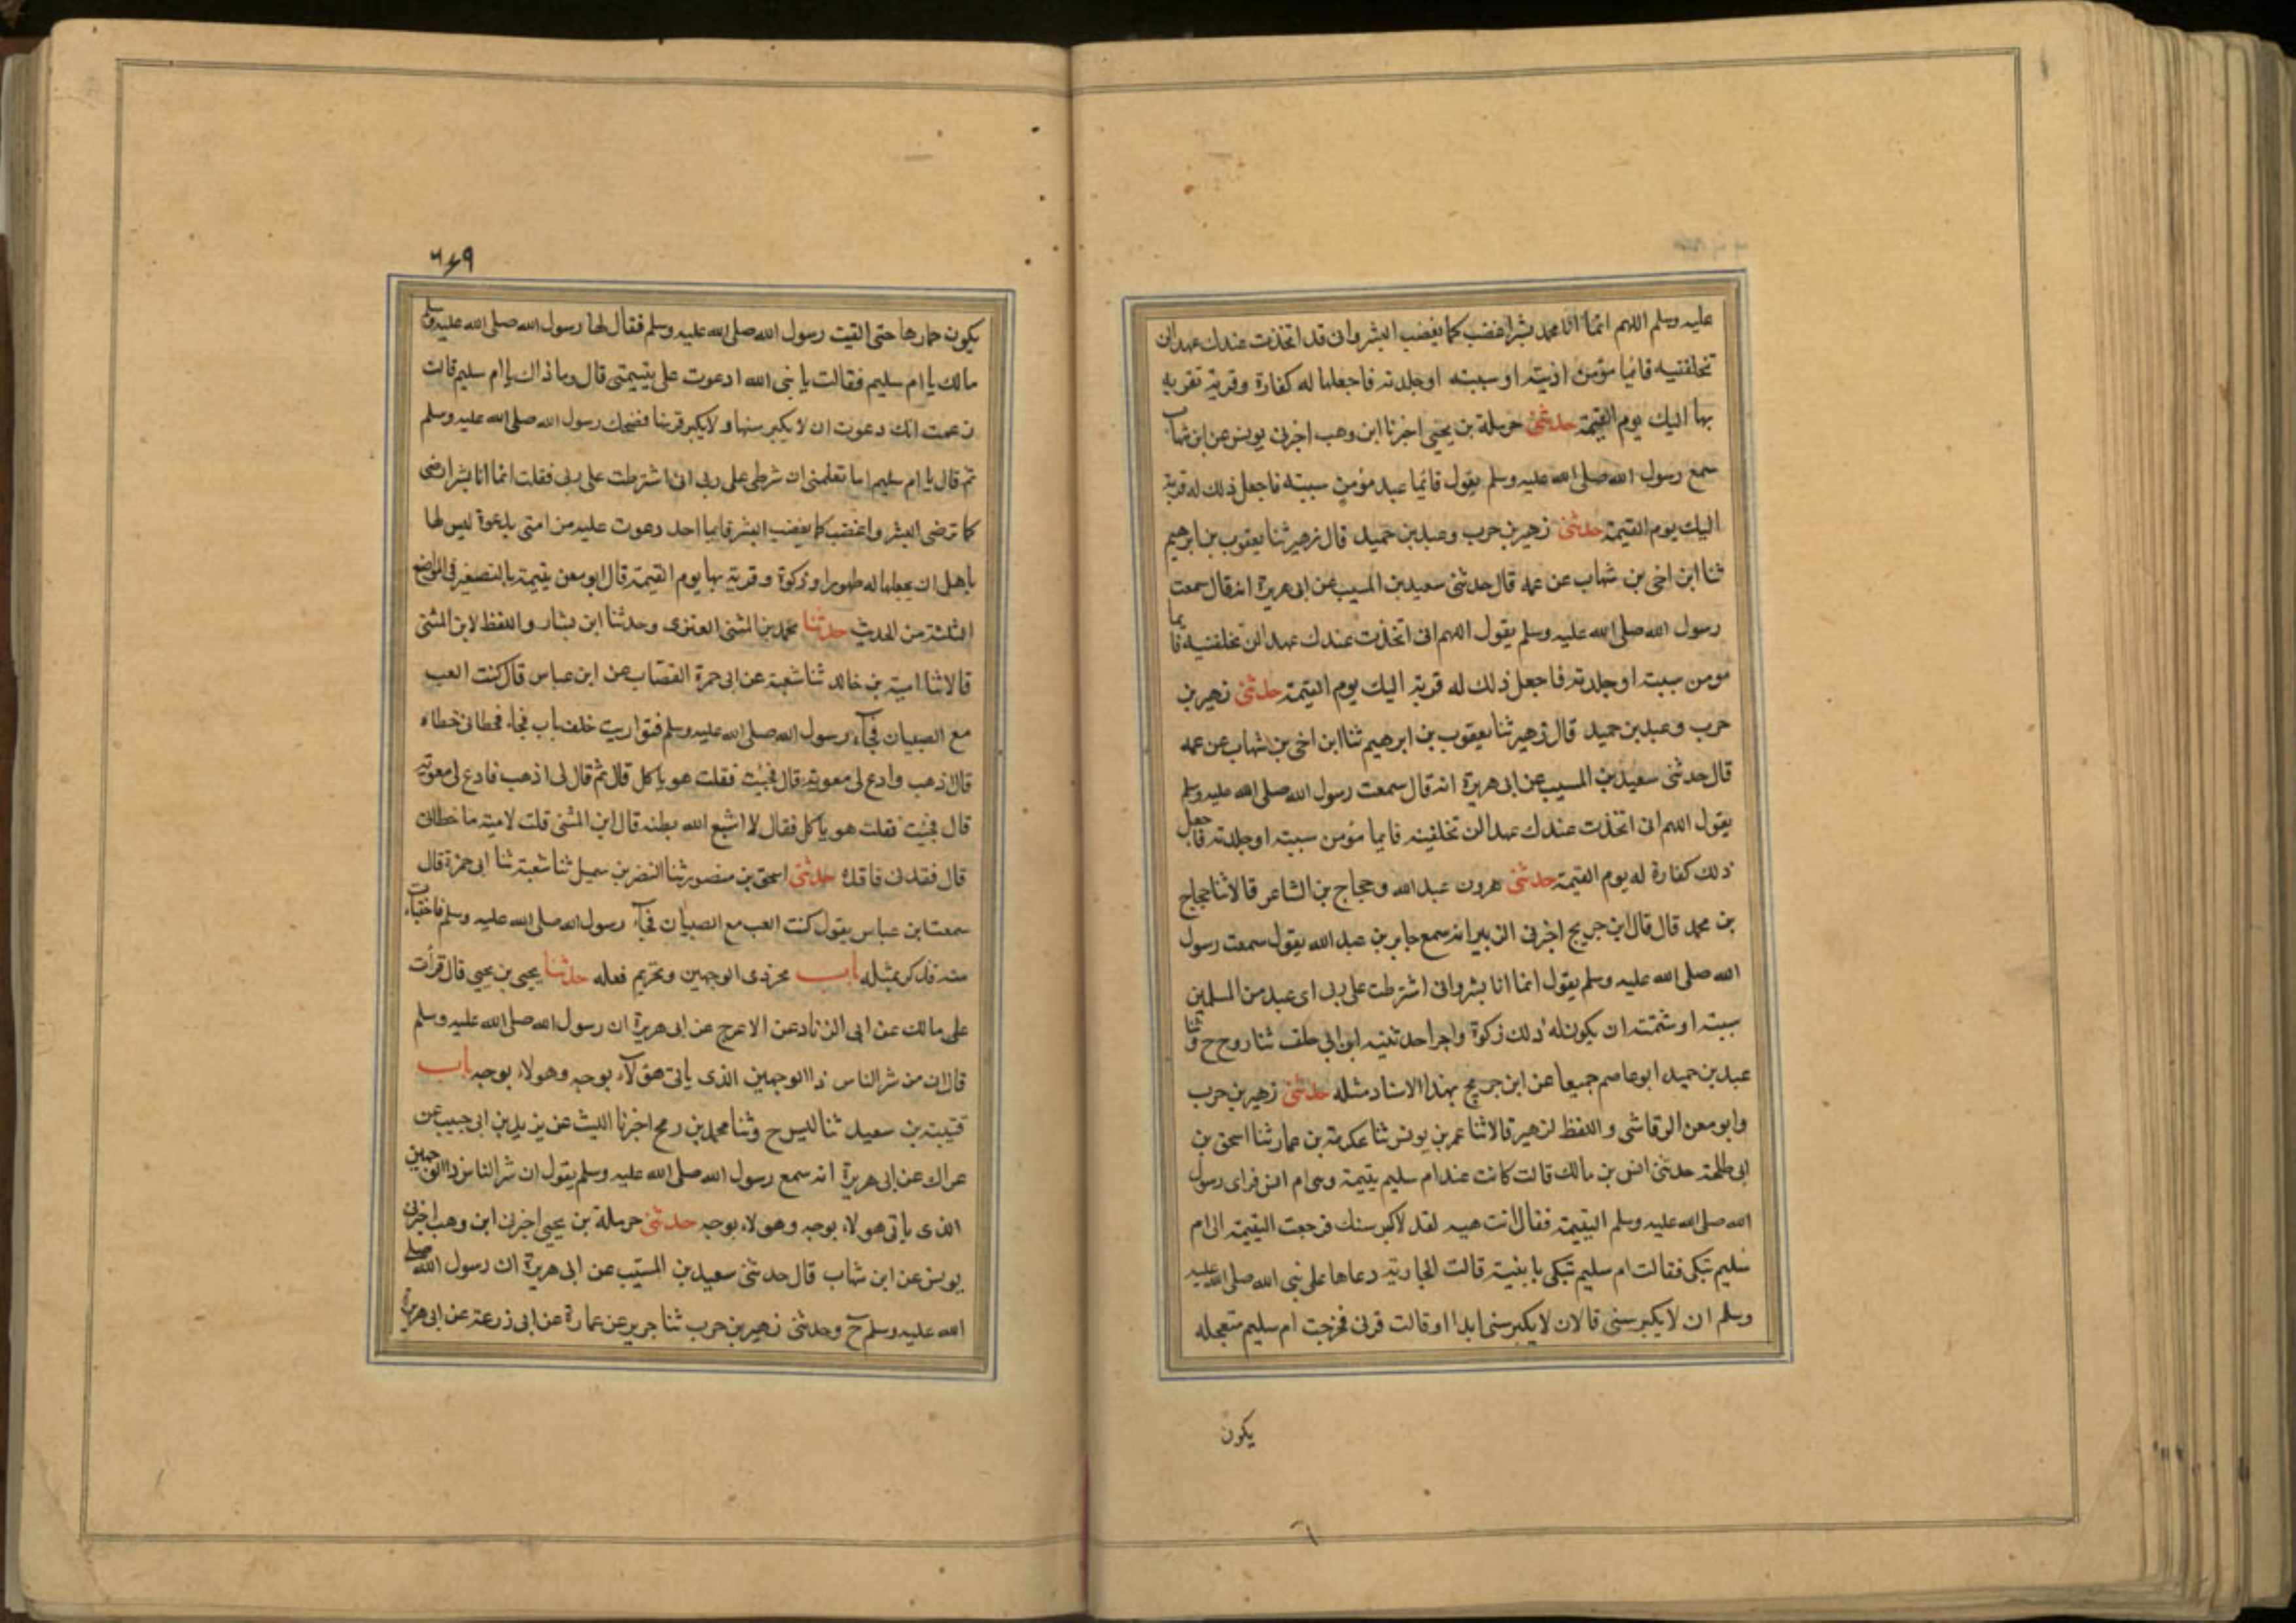 عليه وسلم اللهم انما انا محمد بشر اغضب كما يغضب البشر وانى قد اتخذت عندك عهدا لن
تخلفنيه فايما مؤمن اذيته او سببته او جلدته فاجعلها له كفارة وقربة تقربه
بها اليك يوم القيمة حدثنى حرملة بن يحيى اخبرنا ابن وهب اخبرنى يونس عن ابن شهاب
سمع رسول الله صلى الله عليه وسلم يقول فايما عبد مؤمن سببته فاجعل ذلك له قربة
اليك يوم القيمة حدثنى زهير بن حرب وعبد بن حميد قال زهير ثنا يعقوب بن ابرهيم
ثنا ابن اخى بن شهاب عن عمه قال حدثنى سعيد بن المسيب عن ابى هريرة انه قال سمعت
رسول الله صلى الله عليه وسلم يقول اللهم انى اتخذت عندك عهدا لن تخلفنيه فايما
مومن سببته او جلدته فاجعل ذلك له قربة اليك يوم القيمة حدثنى زهير بن
حرب وعبد بن حميد قال زهير ثنا يعقوب بن ابرهيم ثنا ابن اخى بن شهاب عن عمه
قال حدثنى سعيد بن المسيب عن ابى هريرة انه قال سمعت رسول الله صلى الله عليه وسلم
يقول اللهم انى اتخذت عندك عهدا لن تخلفينه فايما مؤمن سببته او جلدته فاجعل
ذلك كفارة له يوم القيمة حدثنى هرون عبد الله وحجاج بن الشاعر قالا ثنا حجاج
بن محمد قال قال ابن جريج اخبرنى الزبير انه سمع جابر بن عبد الله يقول سمعت رسول
الله صلى الله عليه وسلم يقول انما انا بشر وانى اشترطت على ربى اى عبد من المسلمين
سببته او شتمته ان يكون له ذلك زكوة واجرا حدثنيه ابن ابى خلف ثنا روح ح وثنا
عبد بن حميد ابو عاصم جميعا عن ابن جريج بهذا الاسناد مثله حدثنى زهير بن حرب
وابو معن الرقاشى واللفظ لزهير قالا ثنا عمر بن يونس ثنا عكرمة بن عمار ثنا اسحق بن
ابى طلحة حدثنى انس بن مالك قالت كانت عند ام سليم يتيمة وهى ام انس فراى رسول
الله صلى الله عليه وسلم اليتيمة فقال انت هيه لقد لاكبر سنك فرجعت اليتيمة الى ام
سليم تبكى فقالت ام سليم تبكى يا بنية قالت الجارية دعاها على نبى الله صلى الله عليه
وسلم ان لا يكبر سنى قالان لا يكبر سنى ابدا او قالت قرنى فخرجت ام سليم متعجله
يكون
٦٤٩
يكون خمارها حتى القيت رسول الله صلى الله عليه وسلم فقال لها رسول الله صلى الله عليه وسلم
مالك يا ام سليم فقالت يا نبى الله ادعوت على يتيمتى قال وما ذاك يا ام سليم قالت
زعمت انك دعوت ان لا يكبر سنها ولا يكبر قرينا فضحك رسول الله صلى الله عليه وسلم
ثم قال يا ام سليم اما تعلمنى ان شرطى على ربى انى اشترطت على ربى فقلت انما انا بشر ارضى
كما ترضى البشر واغضب كما يغضب البشر فايما احد دعوت عليه من امتى بدعوة ليس لها
باهل ان يجعلها له طهورا وزكوة وقربة بها يوم القيمة قال ابو معن يتيمة بالتصغير فى المواضع
الثلثة من الحديث حدثنا محمد بن المثنى العنزى وحدثنا ابن بشار واللفظ لابن المثنى
قالا ثنا امية بن خالد ثنا شعبة عن ابى حمزة القصاب عن ابن عباس قال كنت العب
مع الصبيان فجاء رسول الله صلى الله عليه وسلم فتواريت خلف باب فجاء فحطانى حطاه
قال اذهب وادع لى معوية قال فجئت فقلت هو ياكل قال ثم قال لى اذهب فادع لى معوية
قال فجئت فقلت هو ياكل فقال لا اشبع الله بطنه قال ابن المثنى قلت لامية ما حطانى
قال فقدنى فاقده حدثنى اسحق بن منصور ثنا النضر بن سميل ثنا شعبة ثنا ابى حمزة قال
سمعت ابن عباس يقول كنت العب مع الصبيان فجاء رسول الله صلى الله عليه وسلم فاختبأت
منه فذكر بمثله باب عن ذى الوجهين وتحريم فعله حدثنا يحيى بن يحيى قال قرأت
على مالك عن ابى الزناد عن الاعرج عن ابى هريرة ان رسول الله صلى الله عليه وسلم
قال ان من شر الناس ذا الوجهين الذى ياتى هؤلاء بوجه وهولاء بوجه باب
قتيبة بن سعيد ثنا ليس ح وثنا محمد بن رمح اخبرنا الليث عن يزيد بن ابى حبيب عن
عراك عن ابى هريرة انه سمع رسول الله صلى الله عليه وسلم يقول ان شر الناس ذا الوجهين
الذى ياتى هولاء بوجه وهولاء بوجه حدثنى حرملة بن يحيى اخبرنى ابن وهب اخبرنى
يونس عن ابن شهاب قال حدثنى سعيد بن المسيب عن ابى هريرة ان رسول الله صلى
الله عليه وسلم ح وحدثنى زهير بن حرب ثنا جرير عن عمارة عن ابى زرعة عن ابى هريرة